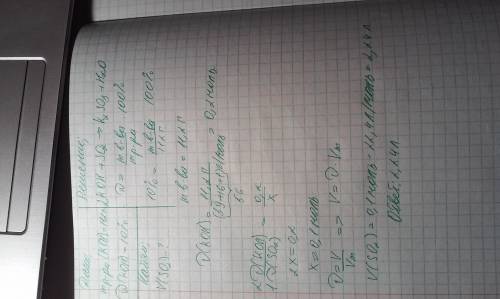 Дано:
m р-ра (KOH) = 112 г
ω(KOH) = 10%
Найти:
V(SO₂) - ?
Решение:
2KOH + SO₂ → K₂SO₃ + H₂O
ω = m в-ва / m р-ра · 100%
10% = m в-ва / 112 г · 100%
m в-ва = 11,2 г
υ(KOH) = 11,2 г / (39+16+1) г/моль = 0,2 моль
56
2 υ(KOH) / 1 υ(SO₂) = 0,2 / x
2x = 0,2
x = 0,1 моль
υ = V / Vm => V = υ · Vm
V(SO₂) = 0,1 моль · 22,4 л/моль = 2,24 л
Ответ: 2,24 л